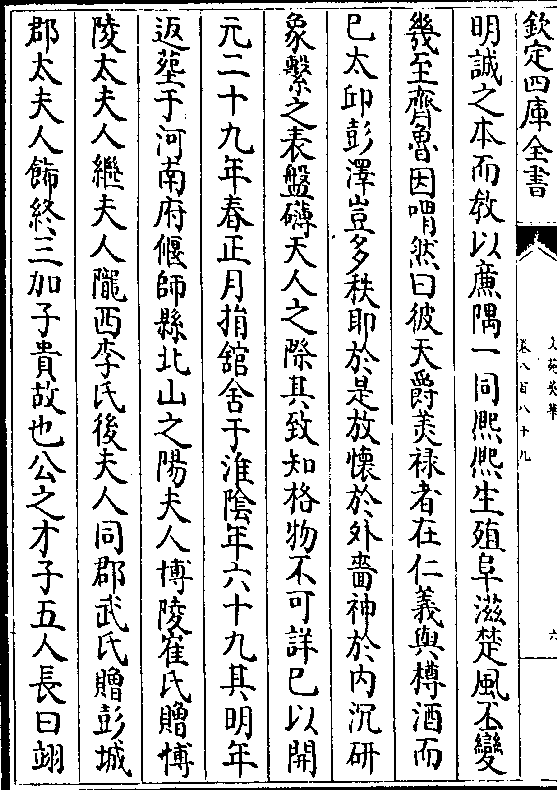 欽定四庫全書
文苑英華
卷八百八十九
六
明誠之本而敎以廉隅一同熙熙生殖阜滋楚風丕變
幾至齊魯因喟然曰彼天爵羙禄者在仁義與樽酒而
已太邱彭澤豈多秩耶於是放懷於外嗇神於内沉研
象繫之表盤礴天人之際其致知格物不可詳已以開
元二十九年春正月捐舘舍于淮隂年六十九其明年
返葬于河南府偃師縣北山之陽夫人博陵崔氏贈博
陵太夫人繼夫人隴西李氏後夫人同郡武氏贈彭城
郡太夫人飾終三加子貴故也公之才子五人長曰翊